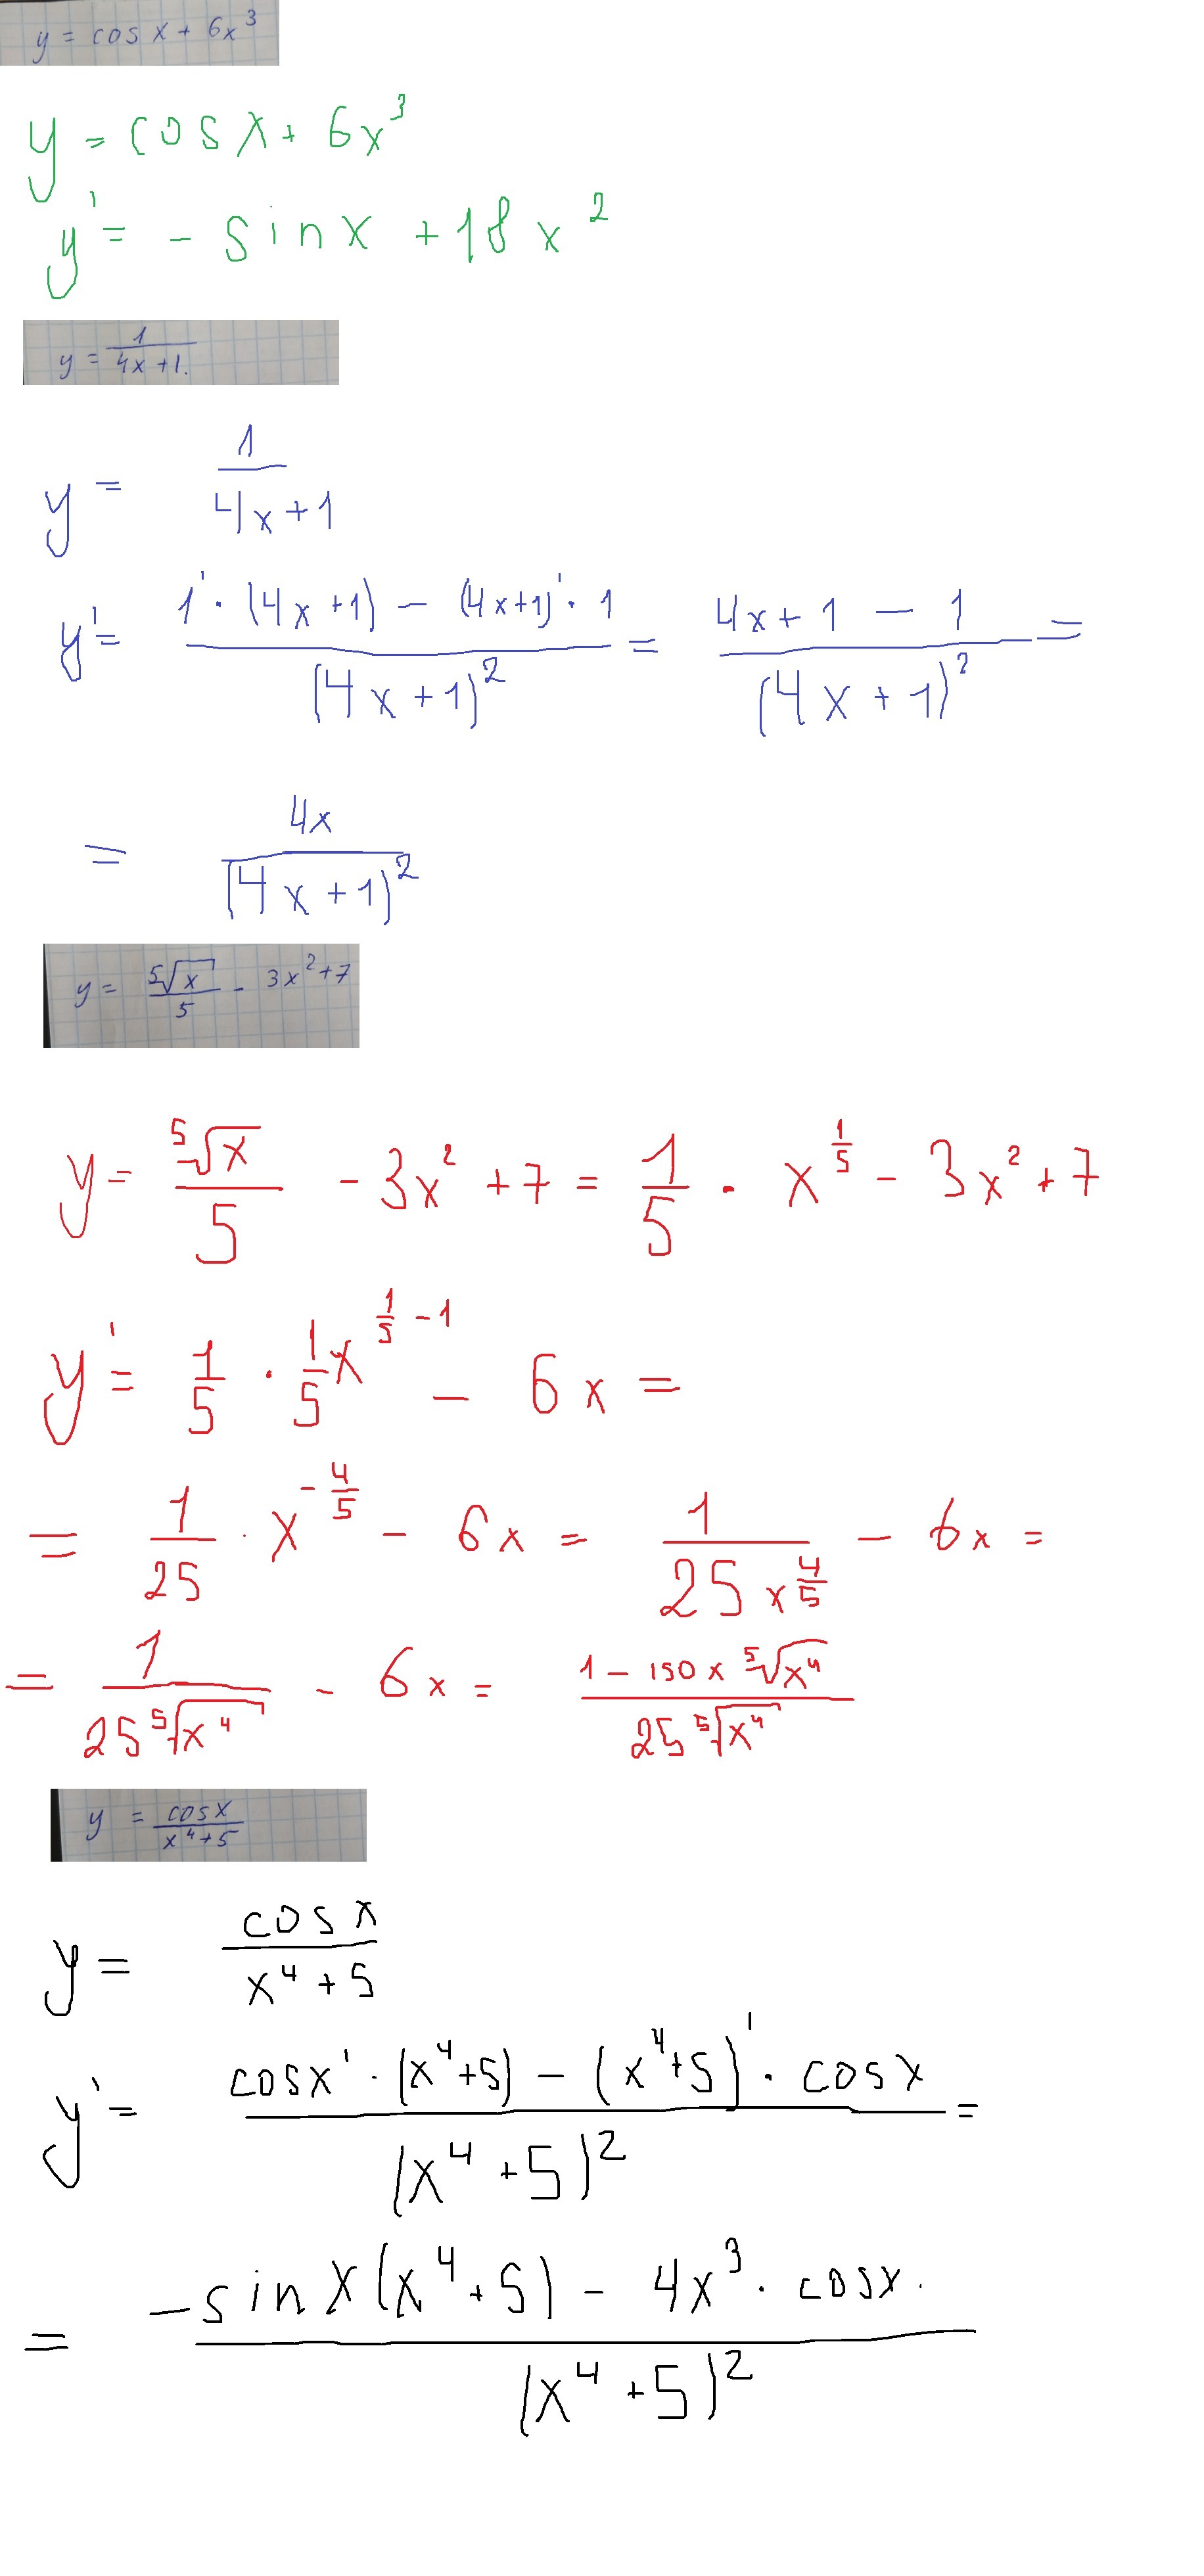 y = cos x + 6x³
y = cos x + 6x³
y' = - sin x + 18x²
y = 1/(4x+1.)
y = 1/(4x+1)
y' = (1' · (4x+1) - (4x+1)' · 1)/(4x+1)² = (4x+1 - 1)/(4x+1)² =
= 4x/(4x+1)²
y = ⁵√x/5 - 3x²+7
y = ⁵√x/5 - 3x² + 7 = 1/5 · x^(1/5) - 3x² + 7
y' = 1/5 · 1/5 x^(1/5 - 1) - 6x =
= 1/25 · x^(-4/5) - 6x = 1/(25x^(4/5)) - 6x =
= 1/(25 ⁵√x⁴) - 6x = (1 - 150x ⁵√x⁴)/(25 ⁵√x⁴)
y = cos x/(x⁴+5)
y = cos x/(x⁴+5)
y' = (cos x' · (x⁴+5) - (x⁴+5)' · cos x)/(x⁴+5)² =
= (-sin x(x⁴+5) - 4x³ · cos x.)/(x⁴+5)²